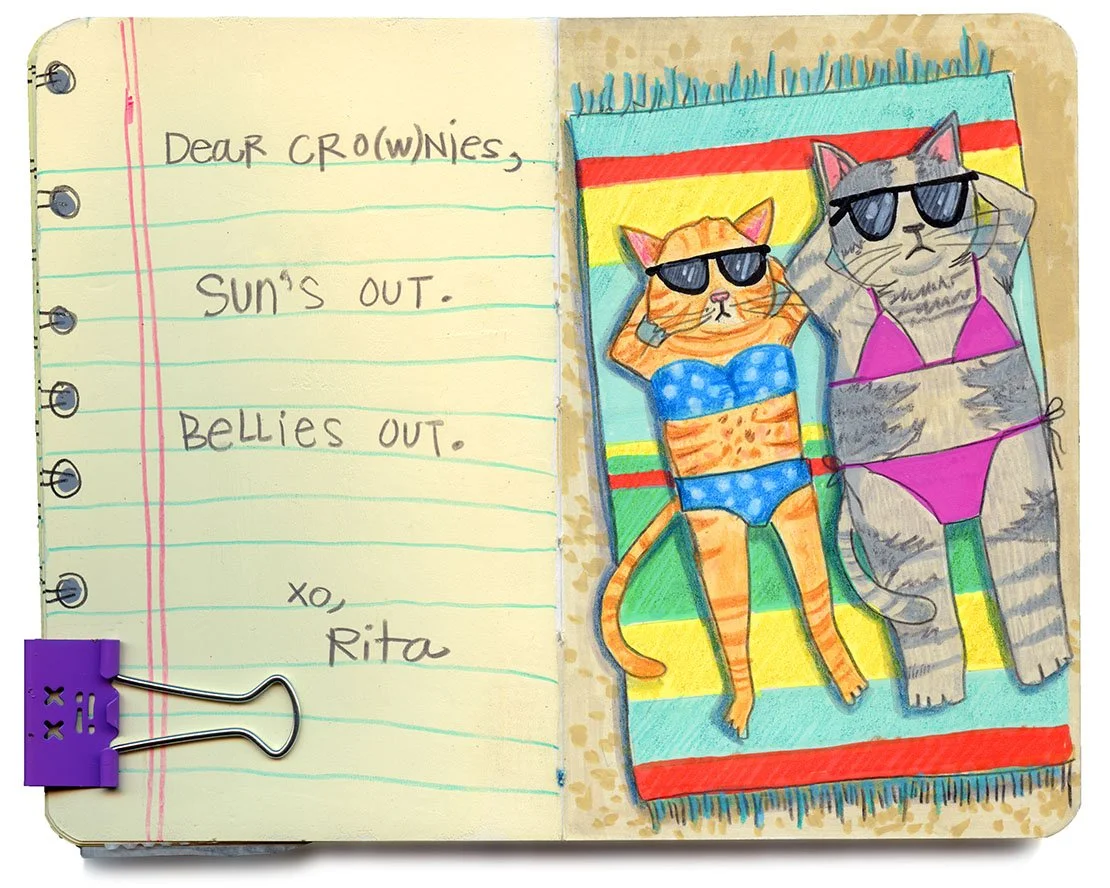 Dear CRO(w)Nies,
Sun's out.
Bellies out.
xo,
Rita